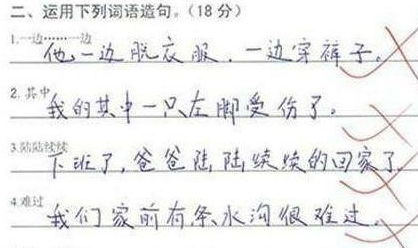 二、运用下列词语造句。（18分）
1.一边……一边
他一边脱衣服．一边穿裤子。
2.其中
我的其中一只左脚受伤了。
3.陆陆续续
下班了，爸爸陆陆续续的回家了
4.难过
我们家前有条水沟很难过.